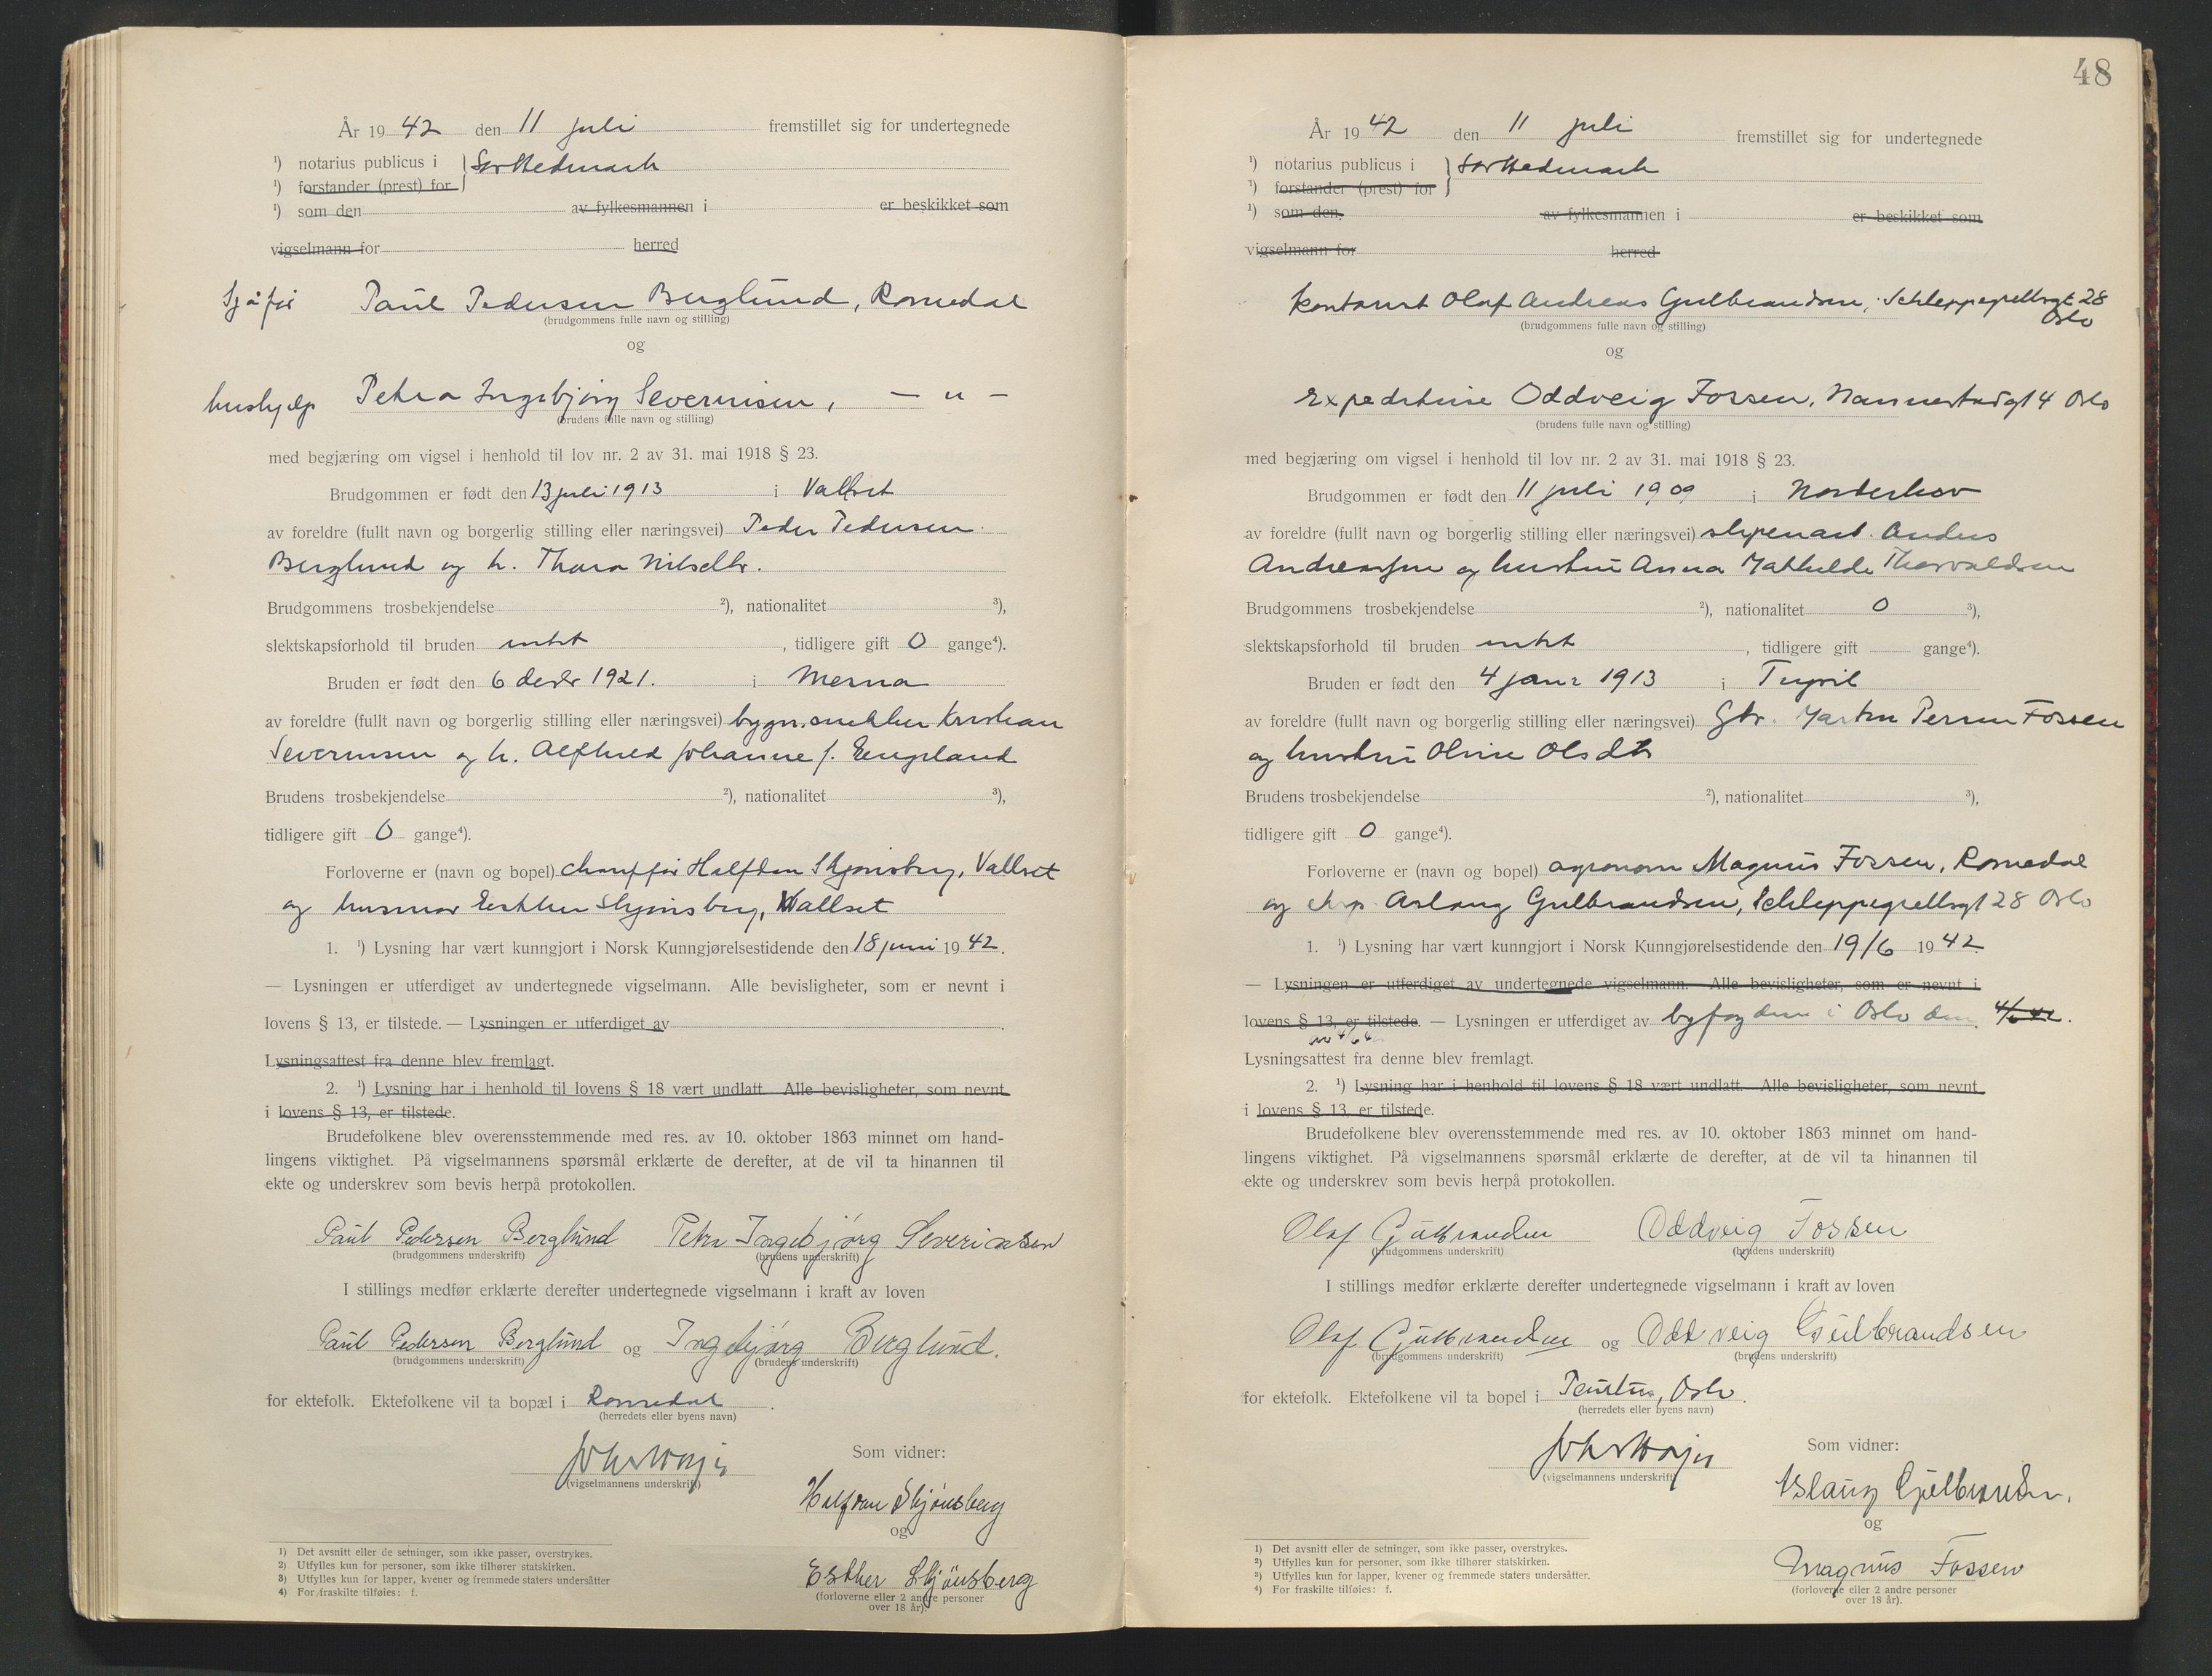 År 19 42 den 11 juli fremstillet sig for undertegnede
¹) notarius publicus i } Sør Hedmark
¹) forstander (prest) for
¹) som den av fylkesmannen i er beskikket som
vigselmann for herred
Sjåfør Paul Pedersen Berglund, Romedal
(brudgommens fulle navn og stilling)
og
hushjelp Petra Ingebjørg Severinsen, — " —
(brudens fulle navn og stilling)
med begjæring om vigsel i henhold til lov nr. 2 av 31. mai 1918 § 23.
Brudgommen er født den 13 juli 1913 i Vallset
av foreldre (fullt navn og borgerlig stilling eller næringsvei) Peder Pedersen
Berglund og h. Thora Nilsdtr.
Brudgommens trosbekjendelse ²), nationalitet ³),
slektskapsforhold til bruden intet, tidligere gift 0 gange⁴).
Bruden er født den 6 desbr 1921. i
av foreldre (fullt navn og borgerlig stilling eller næringsvei) bygn.snekker Kristian
Severinsen og h. Alfhild Johanne f. Engeland
Brudens trosbekjendelse ²), nationalitet ³),
tidligere gift 0 gange⁴).
Forloverne er (navn og bopel) chauffør Halfdan Skjønsberg, Vallset
og husmor Esther Skjønsberg, Vallset
1. ¹) Lysning har vært kunngjort i Norsk Kunngjørelsestidende den 18 juni 19 42.
— Lysningen er utferdiget av undertegnede vigselmann. Alle bevisligheter, som er nevnt i
lovens § 13, er tilstede. — Lysningen er utferdiget av .
Lysningsattest fra denne blev fremlagt.
2. ¹) Lysning har i henhold til lovens § 18 vært undlatt. Alle bevisligheter, som nevnt
i lovens § 13, er tilstede.
Brudefolkene blev overensstemmende med res. av 10. oktober 1863 minnet om hand-
lingens viktighet. På vigselmannens spørsmål erklærte de derefter, at de vil ta hinannen til
ekte og underskrev som bevis herpå protokollen.
Paul Pedersen Berglund Petra Ingebjørg Severinsen
(brudgommens underskrift) (brudens underskrift)
I stillings medfør erklærte derefter undertegnede vigselmann i kraft av loven
Paul Pedersen Berglund og Ingebjørg Berglund.
(brudgommens underskrift) (brudens underskrift)
for ektefolk. Ektefolkene vil ta bopæl i Romedal.
(herredets eller byens navn)
Som vidner:
(vigselmannens underskrift)
Halfdan Skjønsberg
og
Esther Skjönsberg
(forloverne eller 2 andre personer
over 18 år).
¹) Det avsnitt eller de setninger, som ikke passer, overstrykes.
²) Utfylles kun for personer, som ikke tilhører statskirken.
³) Utfylles kun for lapper, kvener og fremmede staters undersåtter
⁴) For fraskilte tilføies: f.
48
År 19 42 den 11 juli fremstillet sig for undertegnede
¹) notarius publicus i } Sør Hedmark
¹) forstander (prest) for
¹) som den, av fylkesmannen i er beskikket som
vigselmann for herred
kontorist Olaf Andreas Gulbrandsen, Schleppegrellsgt 28
Oslo
(brudgommens fulle navn og stilling)
og
Expeditrise Oddveig Fossen, Nannestadgt 4 Oslo
(brudens fulle navn og stilling)
med begjæring om vigsel i henhold til lov nr. 2 av 31. mai 1918 § 23.
Brudgommen er født den 11 juli 1909 i Norderhov
av foreldre (fullt navn og borgerlig stilling eller næringsvei) sliperiarb. Anders
Andreassen og hustru Anna Mathilde Thorvaldsen
Brudgommens trosbekjendelse ²), nationalitet 0 ³),
slektskapsforhold til bruden intet, tidligere gift gange⁴).
Bruden er født den 4 janr 1913 i Trysil
av foreldre (fullt navn og borgerlig stilling eller næringsvei) Gbr. Martin Persen Fossen
og hustru Oline Olsdtr
Brudens trosbekjendelse ²), nationalitet ³),
tidligere gift 0 gange⁴).
Forloverne er (navn og bopel) agronom Magnus Fossen, Romedal
og Aslaug Gulbrandsen, Schleppegrellsgt 28 Oslo
1. ¹) Lysning har vært kunngjort i Norsk Kunngjørelsestidende den 19/6 19 42.
— Lysningen er utferdiget av undertegnede vigselmann. Alle bevisligheter, som er nevnt i
lovens § 13, er tilstede. — Lysningen er utferdiget av byfogden i Oslo den.
Lysningsattest fra denne blev fremlagt.
2. ¹) Lysning har i henhold til lovens § 18 vært undlatt. Alle bevisligheter, som nevnt
i lovens § 13, er tilstede.
Brudefolkene blev overensstemmende med res. av 10. oktober 1863 minnet om hand-
lingens viktighet. På vigselmannens spørsmål erklærte de derefter, at de vil ta hinannen til
ekte og underskrev som bevis herpå protokollen.
Olaf Gulbrandsen Oddveig Fossen
(brudgommens underskrift) (brudens underskrift)
I stillings medfør erklærte derefter undertegnede vigselmann i kraft av loven
Olaf Gulbrandsen og Oddveig Gulbrandsen
(brudgommens underskrift) (brudens underskrift)
for ektefolk. Ektefolkene vil ta bopel i Oslo.
(herredets eller byens navn)
Som vidner:
(vigselmannens underskrift)
Aslaug Gulbrandsen.
og
Magnus Fossen
(forloverne eller 2 andre personer
over 18 år).
¹) Det avsnitt eller de setninger, som ikke passer, overstrykes.
²) Utfylles kun for personer, som ikke tilhører statskirken.
³) Utfylles kun for lapper, kvener og fremmede staters undersåtter.
⁴) For fraskilte tilføies: f.